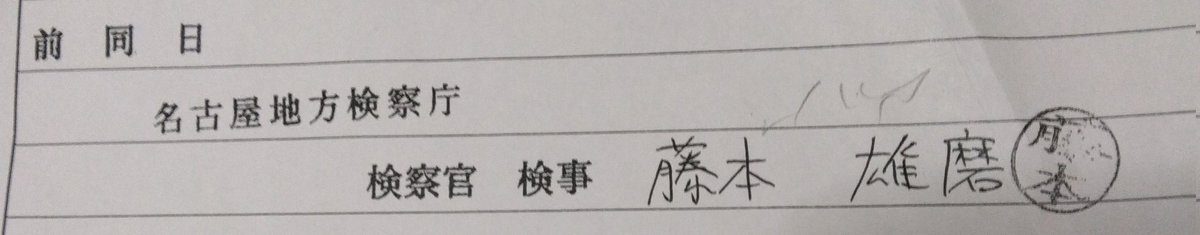 前同日
名古屋地方検察庁
検察官 検事 藤本 雄磨